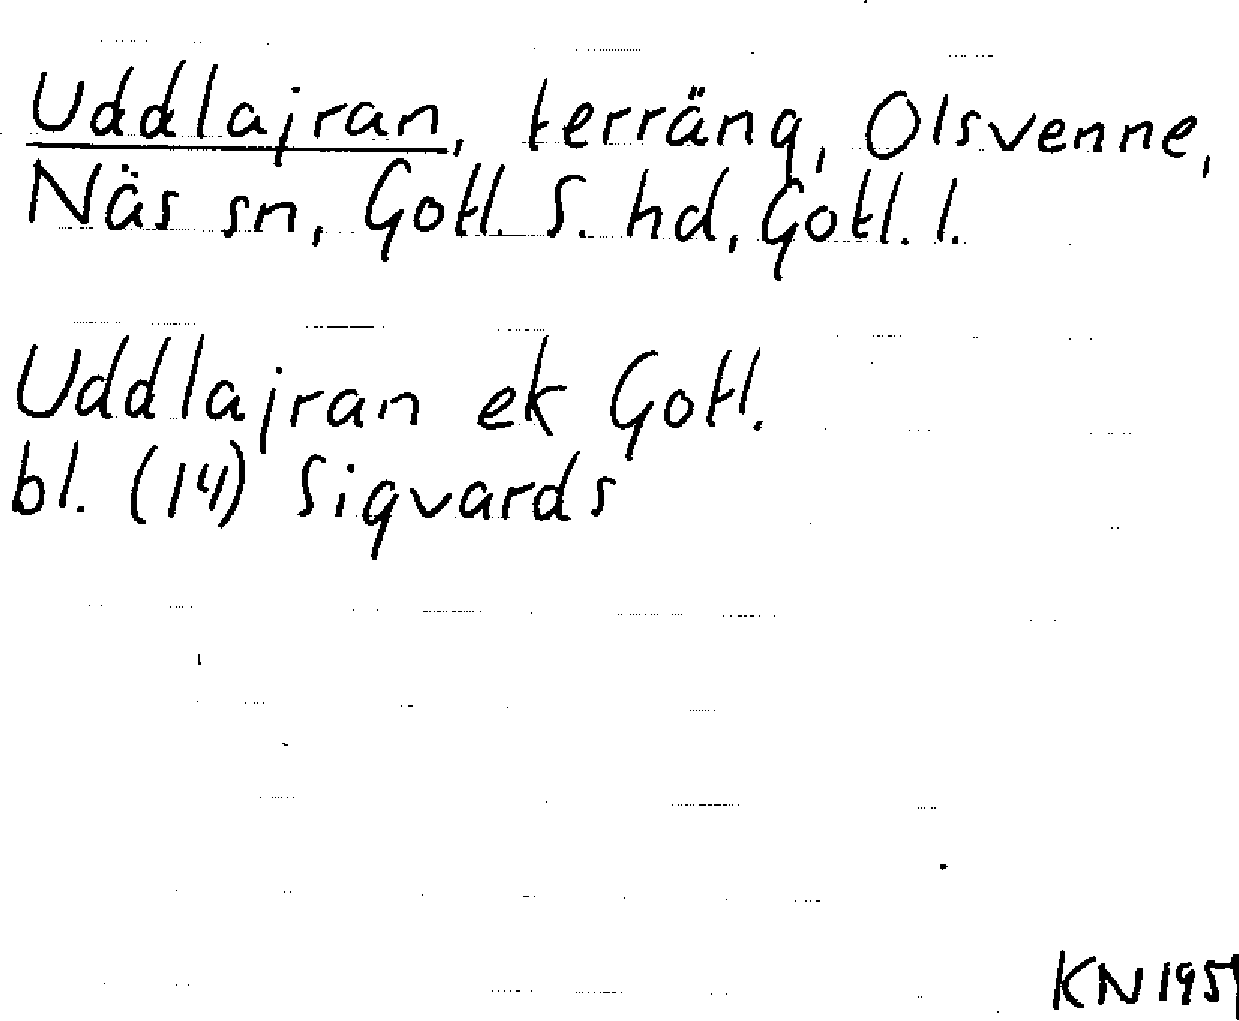 Uddlajran, terräng, Olsvenne,
Näs sn, Gotl. S. hd, Gotl. l.
Uddlajran ek Gotl.
bl. (14) Sigvards
KN 1951